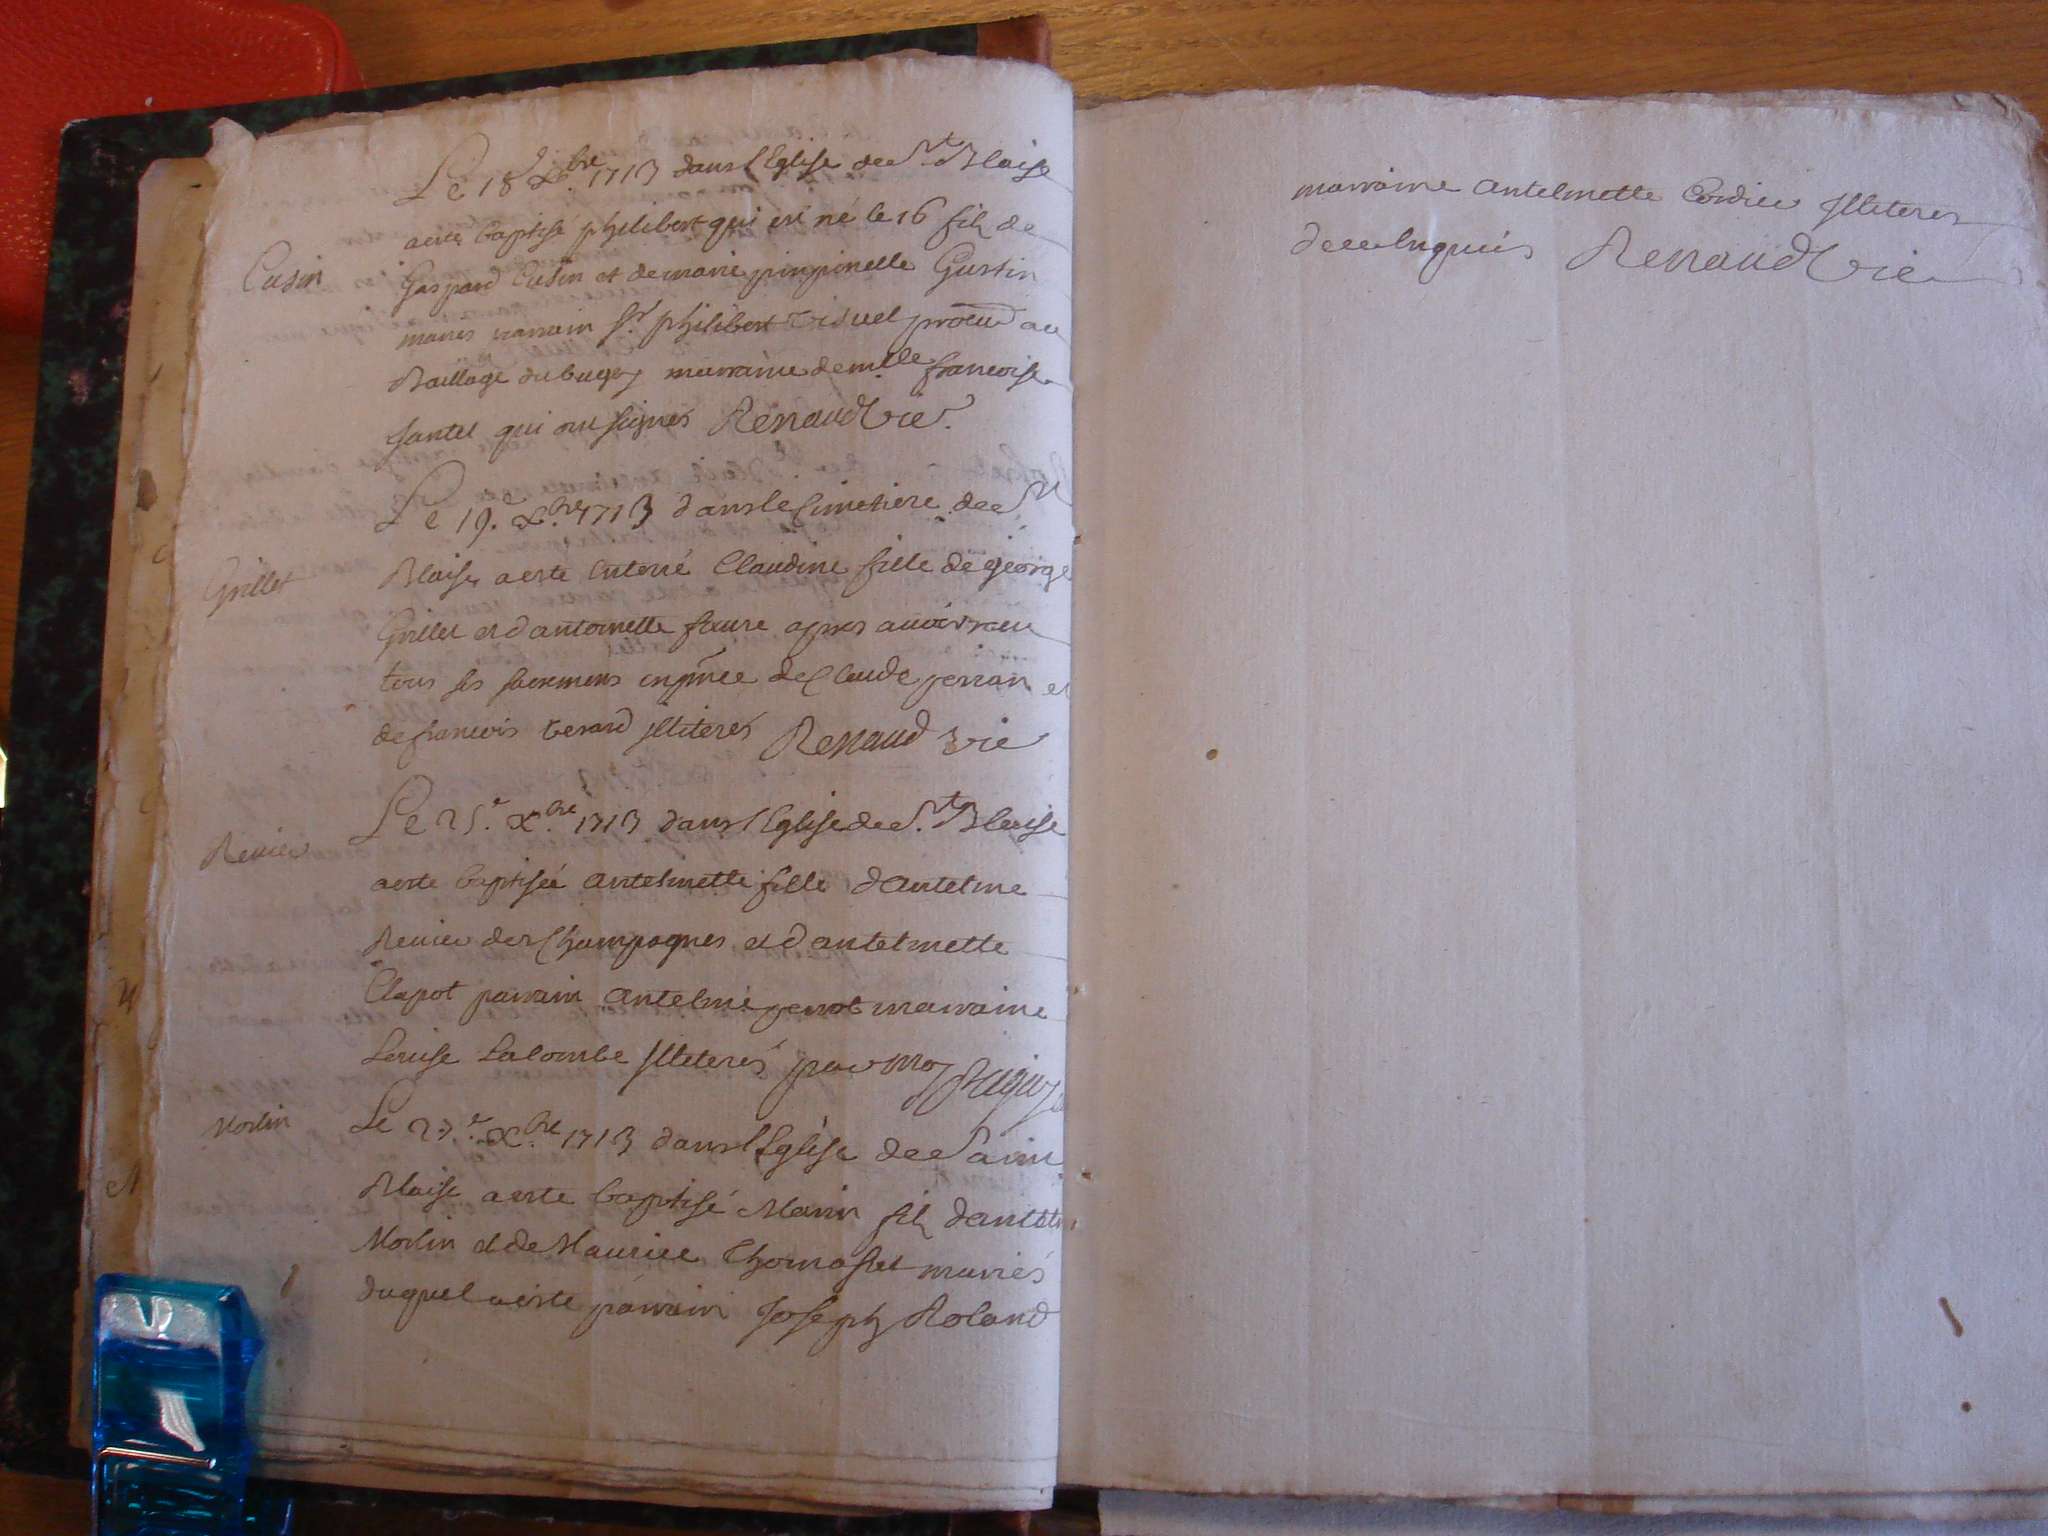 Le 18e Xbre 1713 dans l'Eglise de St Blaise
Cusin
a esté baptisé philibert qui est né le 16 fils de
Gaspard Cusin et de marie pinpinelle Gustin
mariés parrain Sr philibert procud au
Baillage du bugey marraine demlle francoise
Jantet qui ont signés Renaud vic.
Le 19e Xbre 1713 dans le Cimetiere de St
Grillet
Blaise a esté enterré Claudine fille de george
Grillet et d'antoinette faure apres avoir receu
tous ses sacremens en pñce de Claude perran et
de francois berard illiterés Renaud vic
Le 25e Xbre 1713 dans l'Eglise de St Blaise
Revier
a esté baptisée antelmette fille d'antelme
Revier des Champagnes et d'antelmette
Clapot parrain antelme perrot marraine
Louise Lalombe illiterés par moy
Morlin
Le 27e Xbre 1713 dans l'Eglise de Saint
Blaise a esté baptisé Marin fils
Morlin et de Maurice Thomasset mariés
duquel a esté parrain Joseph Roland
marraine antelmette Cordier illiterés
de ce enquis Renaud vic